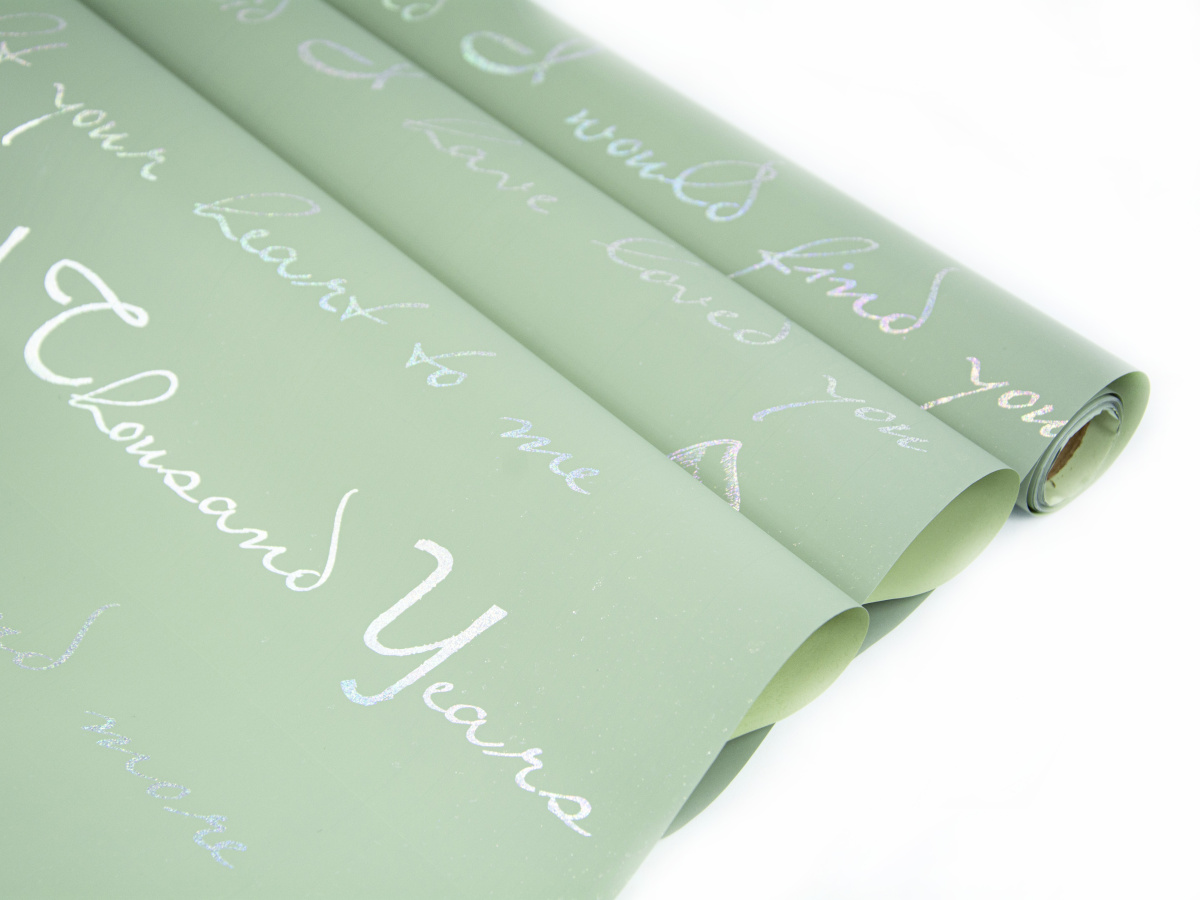 your heart to me
Thousand Years
more
I have loved you
I would find you